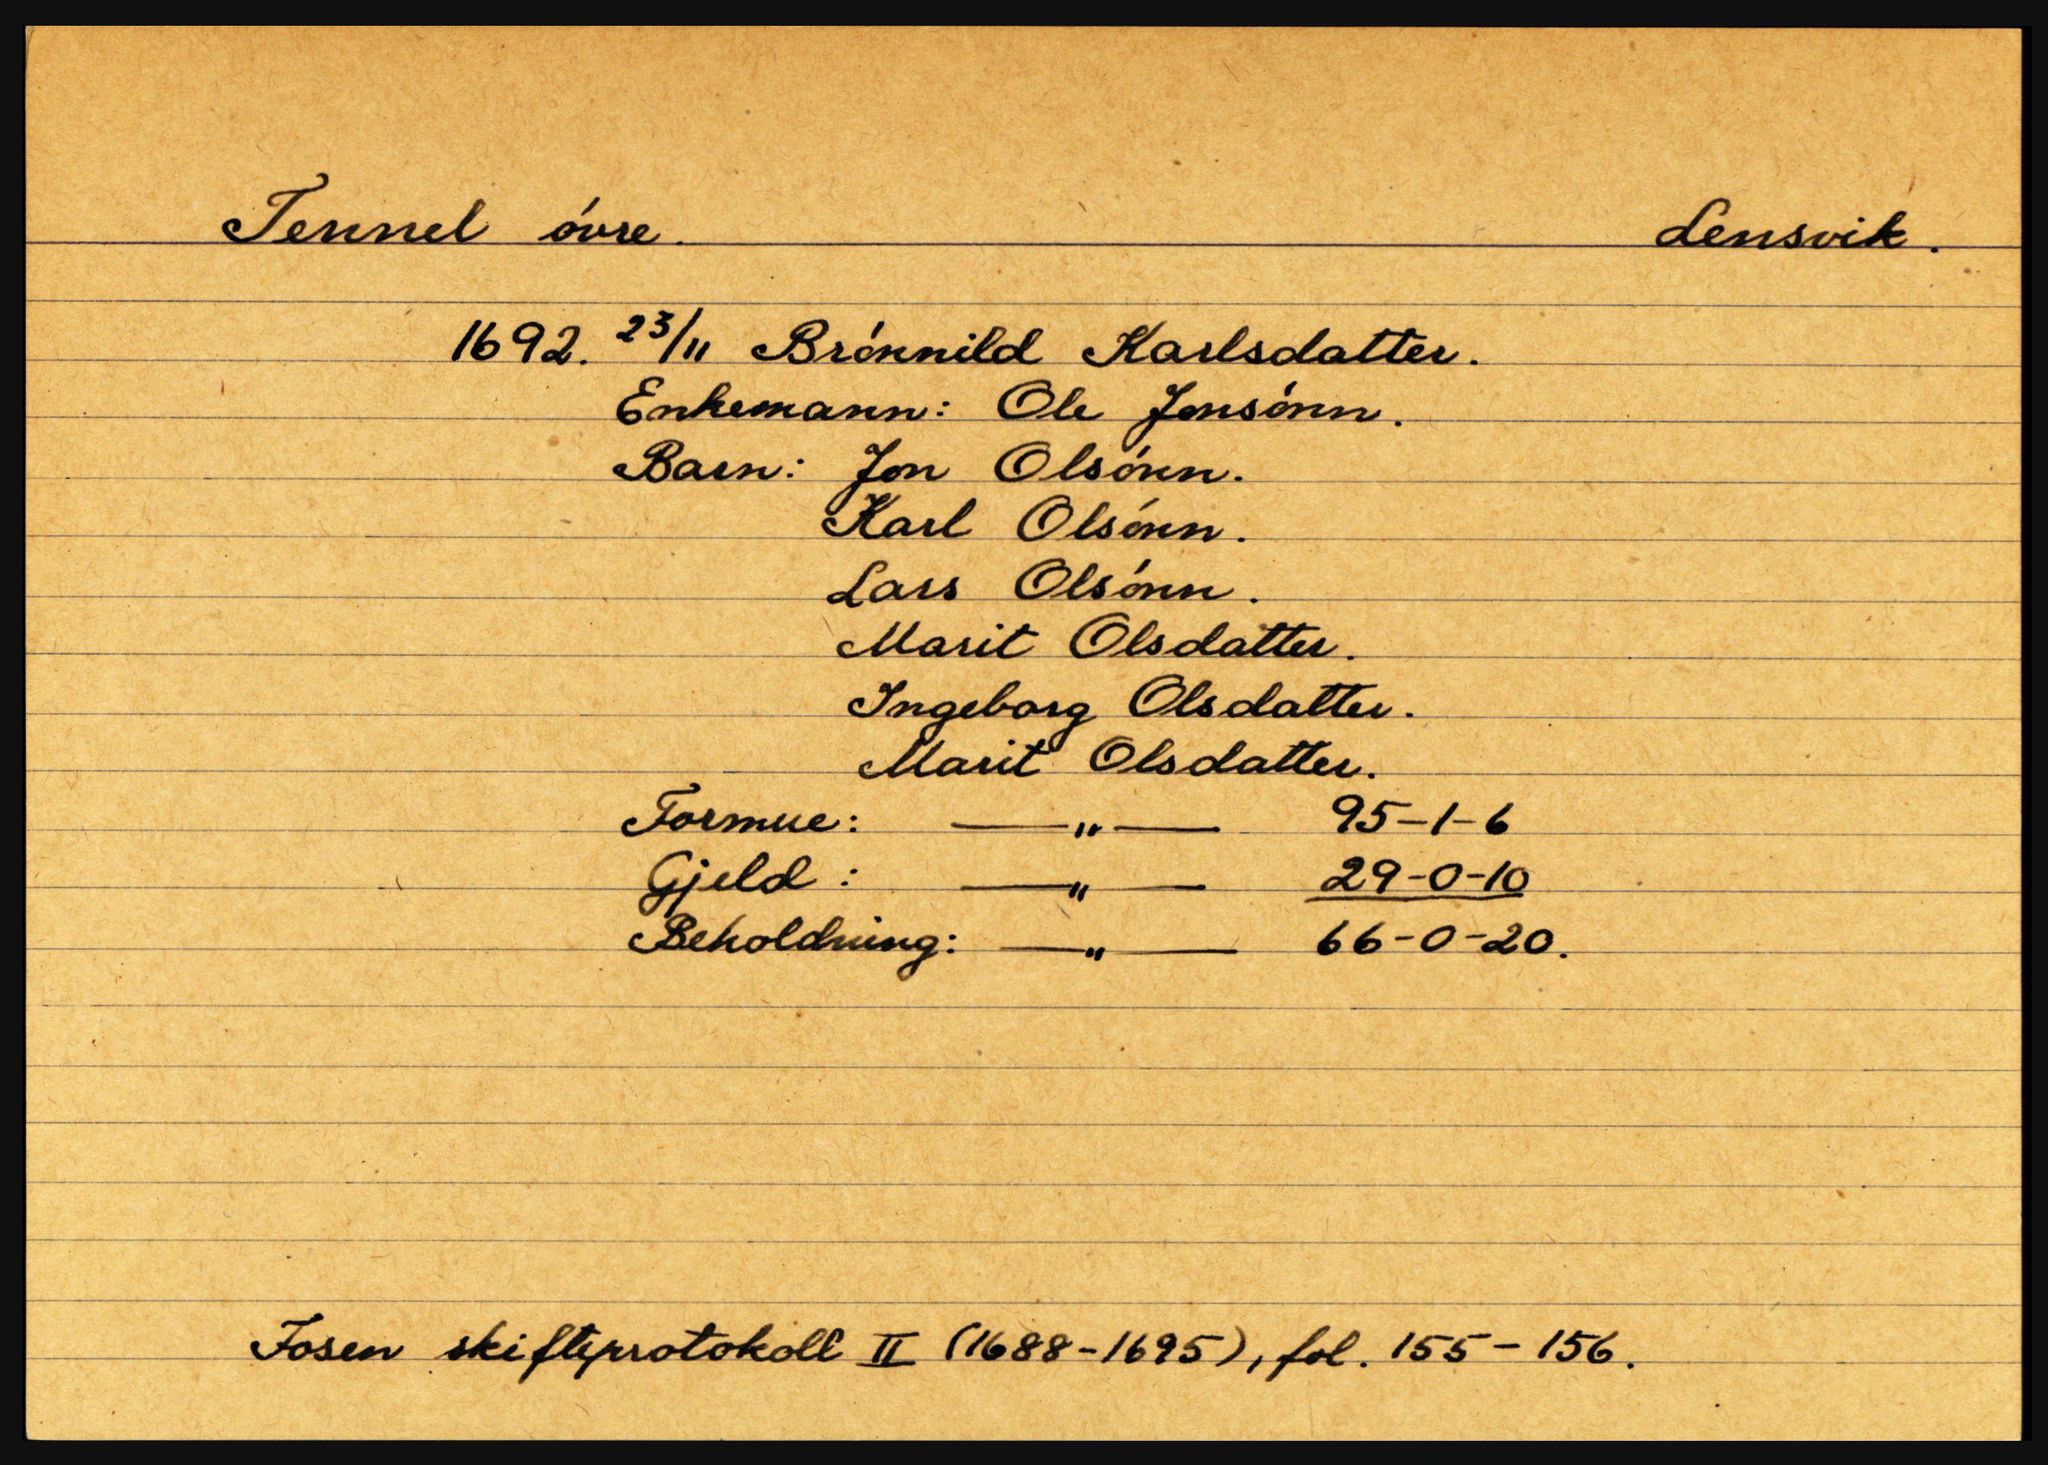 Tennel óvre. Lensvik.
1692. 23/11 Brónnild Karlsdatter.
Enkemann: Ole Jonsónn.
Barn: Jon Olsónn.
Karl Olsónn.
Lars Olsónn.
Marit Olsdatter.
Ingeborg Olsdatter.
Marit Olsdatter.
Formue: —„— 95-1-6
Gjeld: —„— 29-0-10
Beholdning: —„— 66-0-20.
Fosen skifteprotokoll II (1688-1695), fol. 155-156.